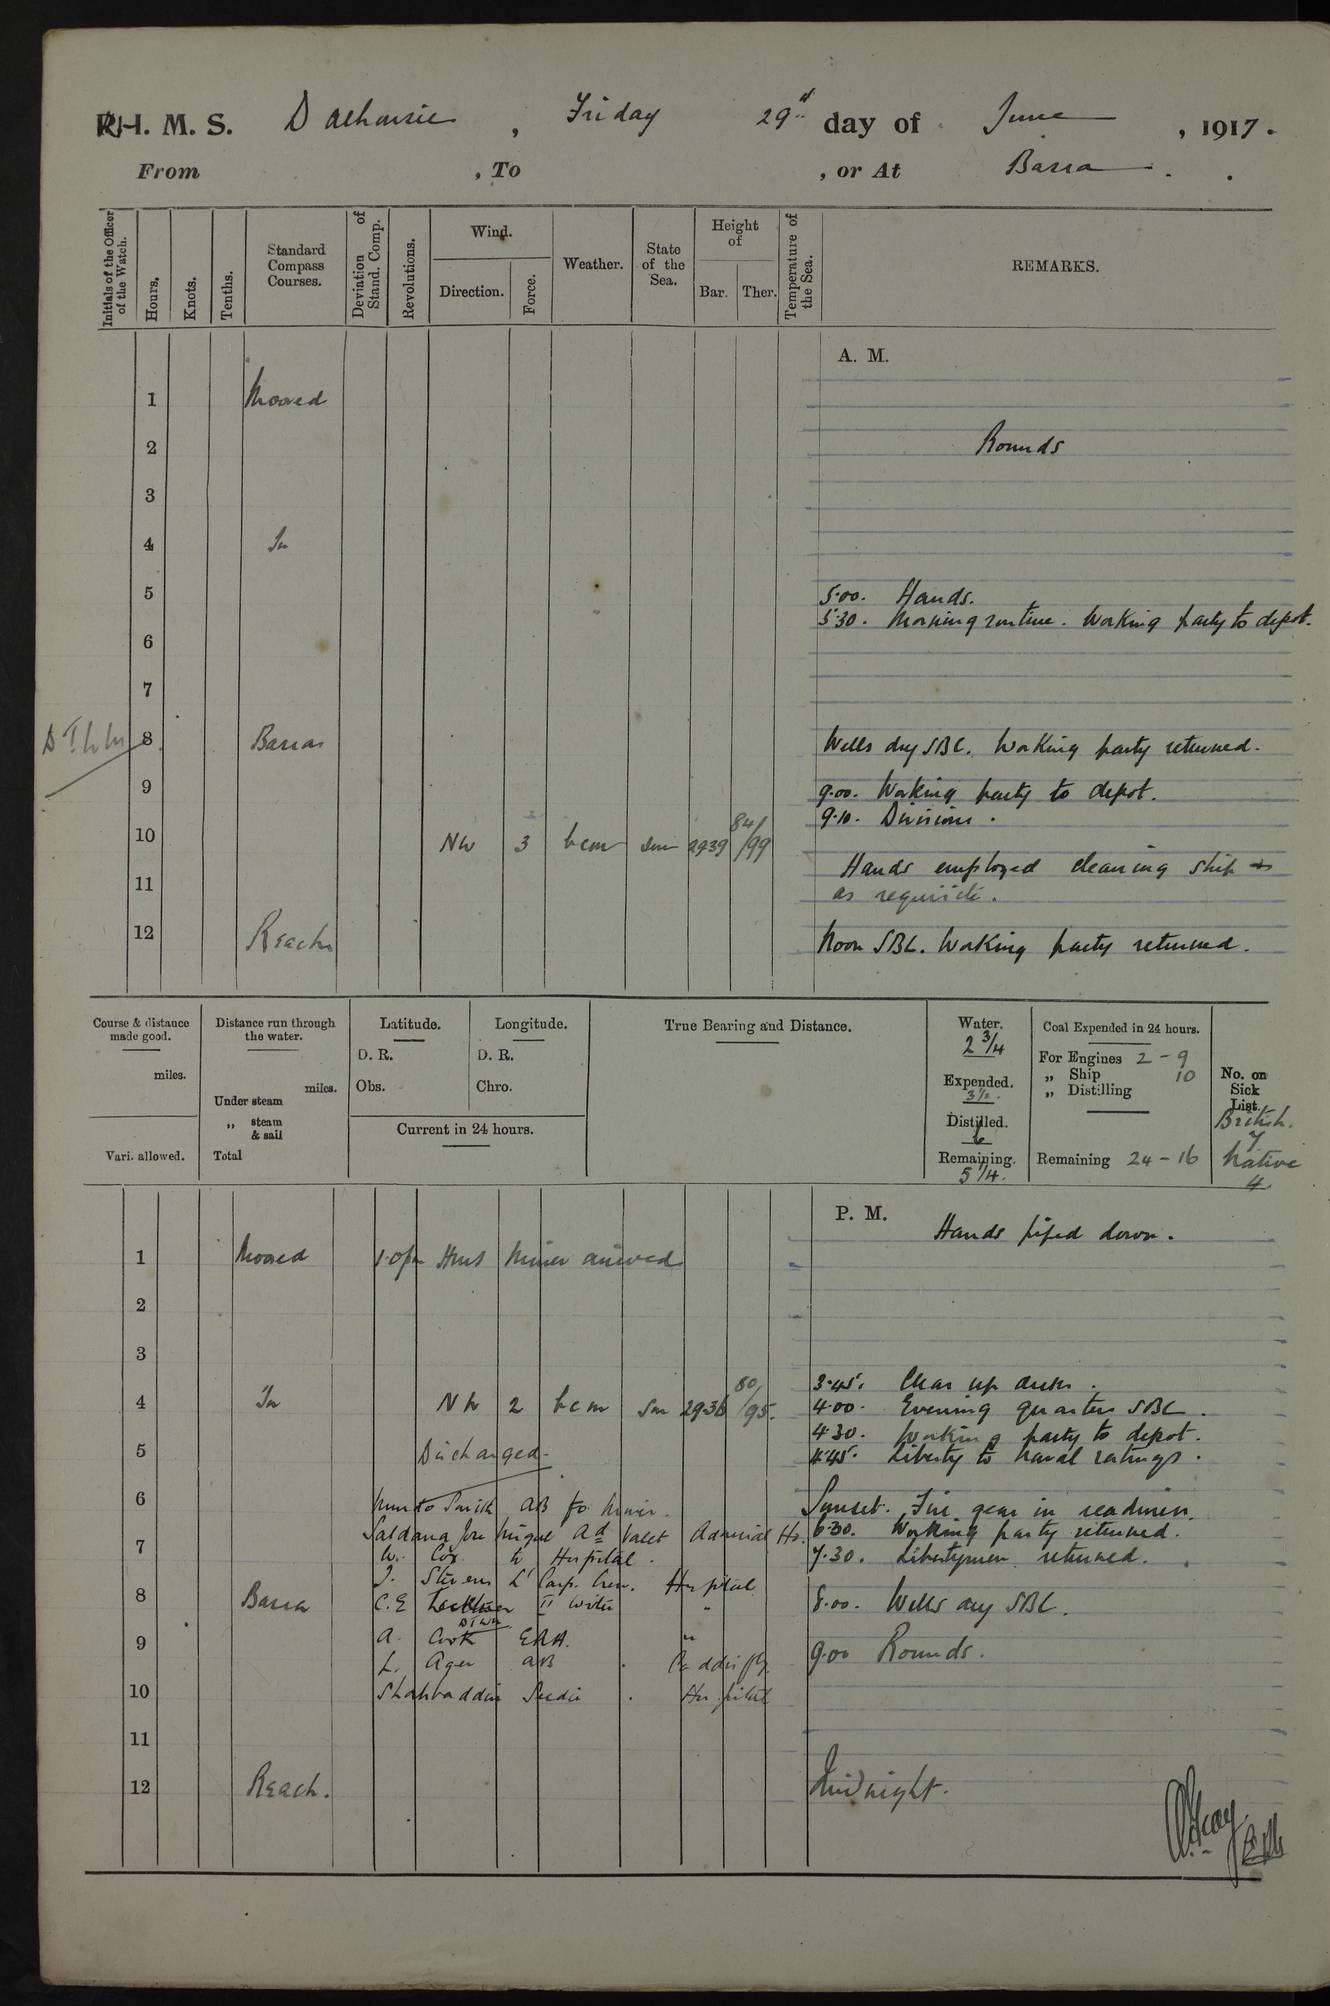 R.I.M.S. Dalhousie, Friday 29th day of June, 1917.
From , To , or At Basra.
Initials of the Officer of the Watch.
Hours.
Knots.
Tenths.
Standard Compass Courses.
Deviation of Stand. Comp.
Revolutions.
Wind.
Direction.
Force.
Weather.
State of the Sea.
Height of
Bar.
Ther.
Temperature of the Sea.
REMARKS.
A. M.
1 Moored
2 Rounds
3
4 In
5 5.00. Hands.
5.30. Morning routine. Working party to depot.
6
7
8 Basra Wells dry SBC. Working party returned.
9 9.00. Working party to depot.
9.10. Divisions.
10 NW 3 bcm Sm 2939 84/99
Hands employed cleaning ship &
11 as requisite.
12 Reach Noon SBC. Working party returned.
Course & distance made good.
miles.
Vari. allowed.
Distance run through the water.
miles.
Under steam
„ steam & sail
Total
Latitude.
D. R.
Obs.
Longitude.
D. R.
Chro.
Current in 24 hours.
True Bearing and Distance.
Water.
2 3/4
Expended.
3 1/2.
Distilled.
6
Remaining.
5 1/4.
Coal Expended in 24 hours.
For Engines 2 - 9
„ Ship 10
„ Distilling
Remaining 24 - 16
No. on Sick List.
British.
7
Native
4
P. M.
Hands piped down.
1 Moored 1.0 pm HMS Miner arrived
2
3
3.45. Clear up decks.
4 In NW 2 bcm Sm 2936 80/95. 4.00. Evening quarters SBC.
4.30. Working party to depot.
5 Discharged- 4.45. Liberty to Naval ratings.
6 AB to Miner. Sunset. Fire gear in readiness.
Saldana Jose Miguel Ad Valet Admiral Ho. 6.30. Working party returned.
7 W. Cox to Hospital. 7.30. Libertymen returned.
J. Stevens Lt Carp. Crew. Hospital
8 Basra C.E II Writer " 8.00. Wells dry SBC.
9 A. Cook ERA. " 9.00 Rounds.
L. Ager AB
10 Shahbaddin Seedie Hospital
11
12 Reach. Midnight.